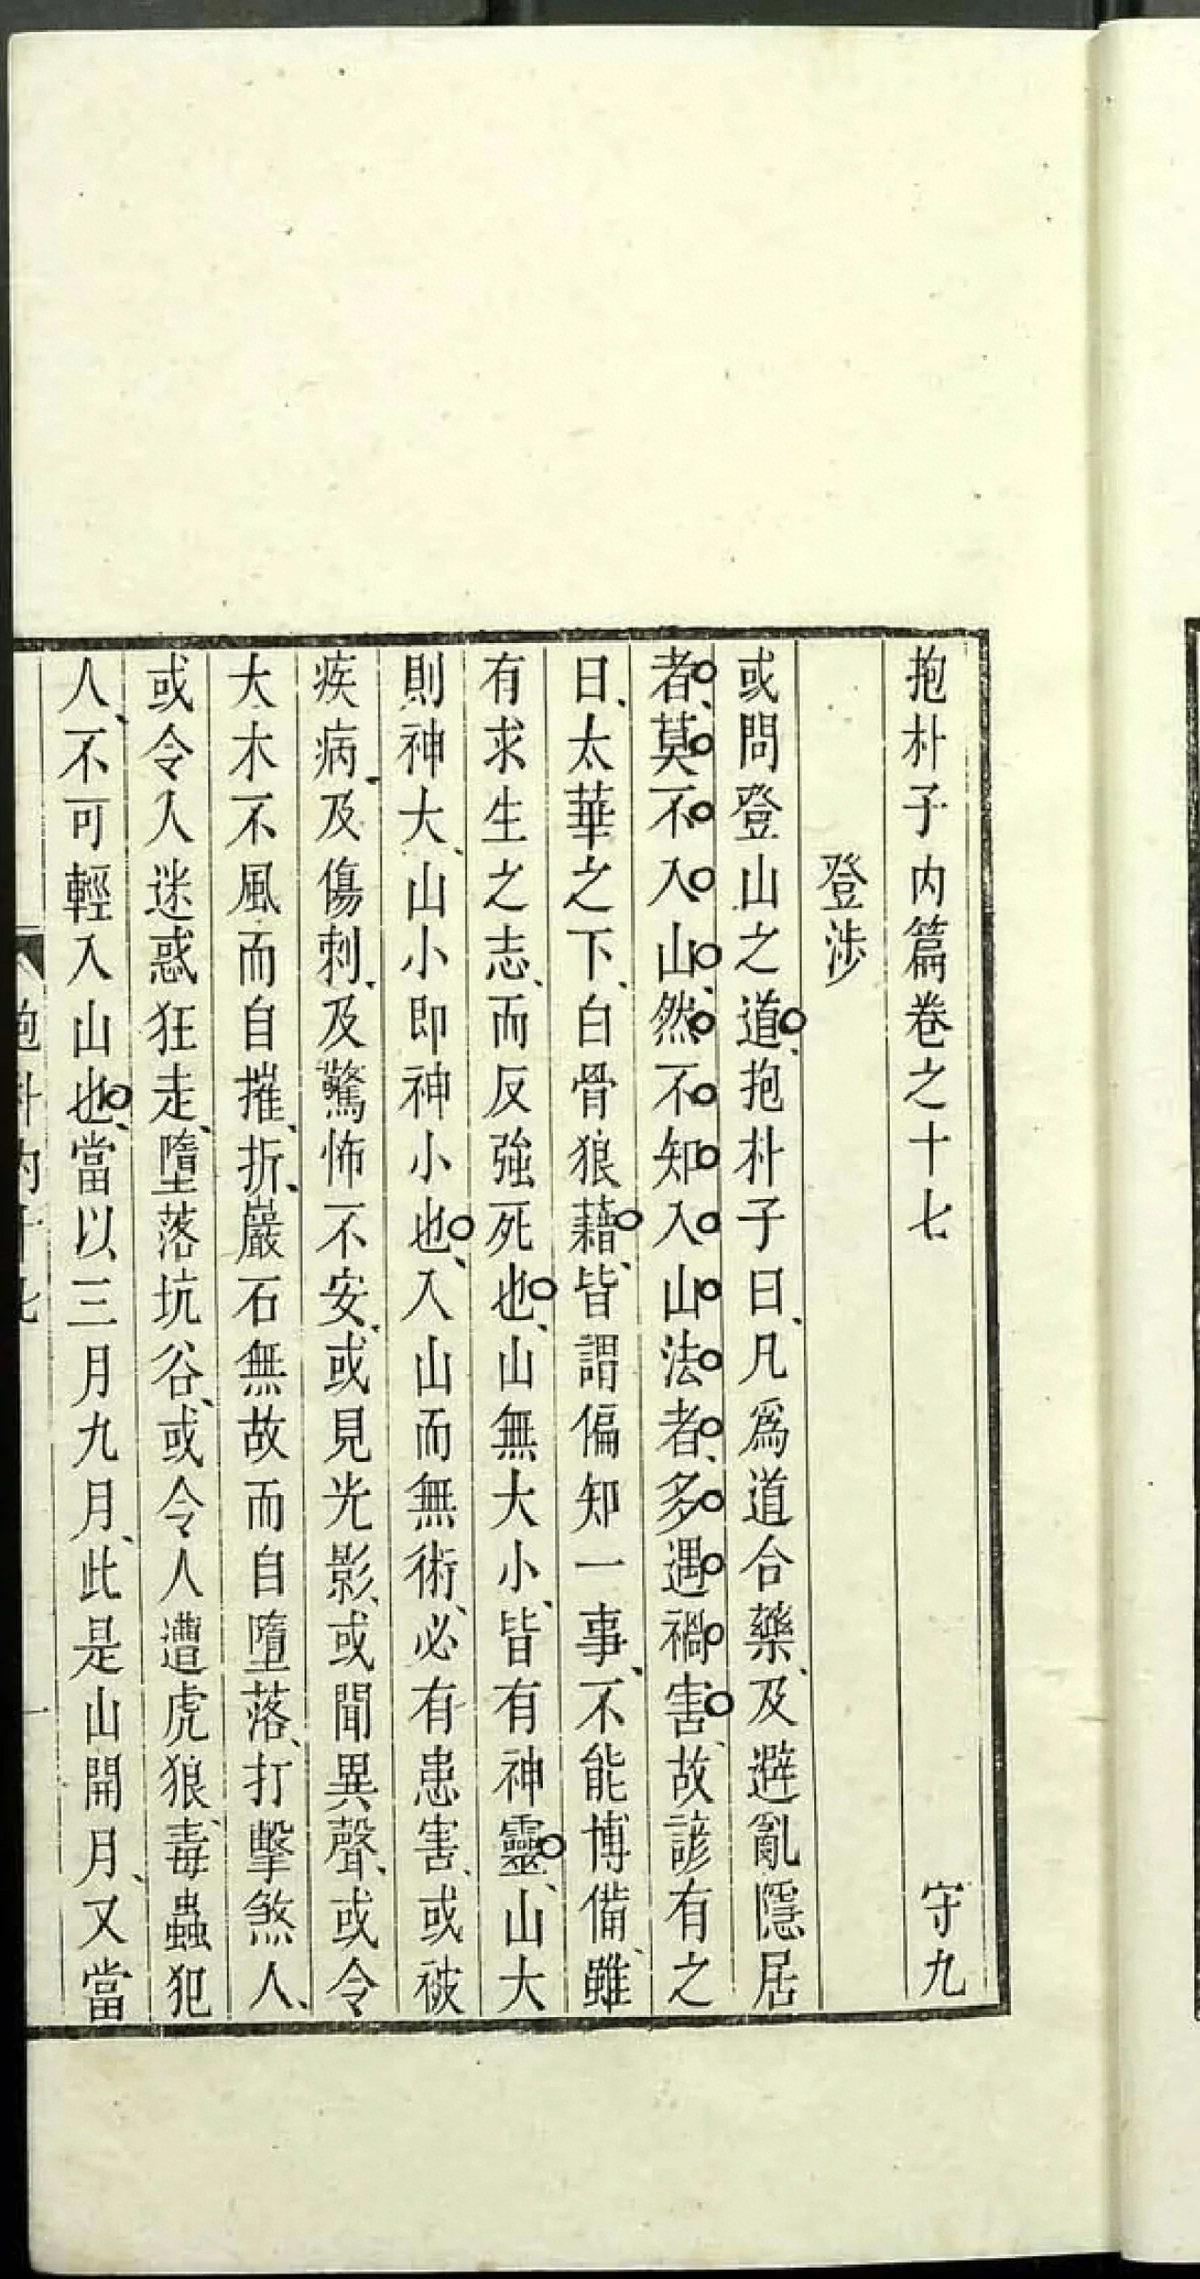 抱朴子内篇卷之十七 守九
登涉
或問登山之道抱朴子曰凡爲道合藥及避亂隱居
者莫不入山然不知入山法者多遇禍害故諺有之
曰太華之下白骨狼藉皆謂偏知一事不能博備雖
有求生之志而反強死也山無大小皆有神靈山大
則神大山小即神小也入山而無術必有患害或被
疾病及傷刺及驚怖不安或見光影或聞異聲或令
大木不風而自摧折巖石無故而自墮落打擊煞人
或令人迷惑狂走墮落坑谷或令人遭虎狼毒蟲犯
人不可輕入山也當以三月九月此是山開月又當
抱朴内十七 一